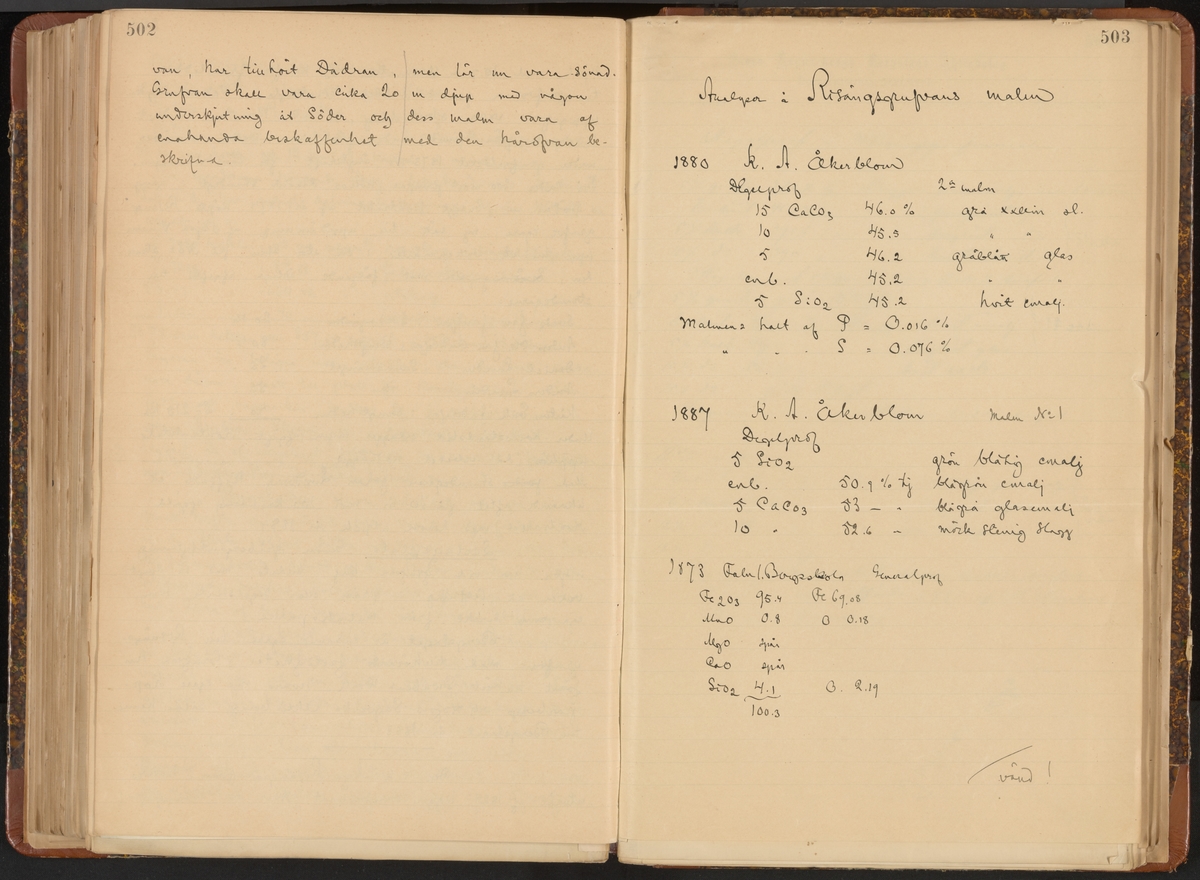 502
van, har tillhört Dådran, men lär nu vara sönad.
Grufvan skall vara cirka 20 m djup med någon
underskjutning åt Söder och dess malm vara af
enahanda beskaffenhet med den härofvan be-
skrifna.
503
Analyser å Risångsgrufvans malm
1880 K. A. Åkerblom
Degelprof 2a malm
15 CaCO3 46.0 % grå
10 45.5 " "
5 46.2 gråblått glas
enb. 45.2 " "
5 SiO2 45.2 hvit emalj.
Malmens halt af P = 0.016 %
" " " S = 0.076 %
1887 K. A. Åkerblom Malm No 1
Degelprof
5 SiO2 grön blåtig emalj
enb. 50.9 % tj blågrön emalj
5 CaCO3 53 — " blågrå glasemalj
10 " 52.6 — mörk stenig slagg
1873 Falu Bergsskola Generalprof
Fe2O3 95.4 Fe 69.08
MnO 0.8 O 0.18
MgO spår
CaO spår
SiO2 4.1 O. 2.19
100.3
vänd!